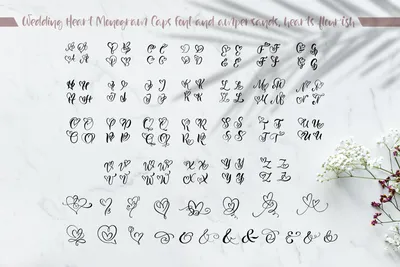 Wedding Heart Monogram Caps Font and ampersands, hearts flourish
A A B B C C D D E E F F G G
A A B B C C D D E E F F G G
H H I I J J K K L L M M N N
H H I I J J K K L L M M N N
O O P P Q Q R R S S T T U U
O O P P Q Q R R S S T T U U
V V W W X X Y Y Z Z
V V W W X X Y Y Z Z
& & & & & & &